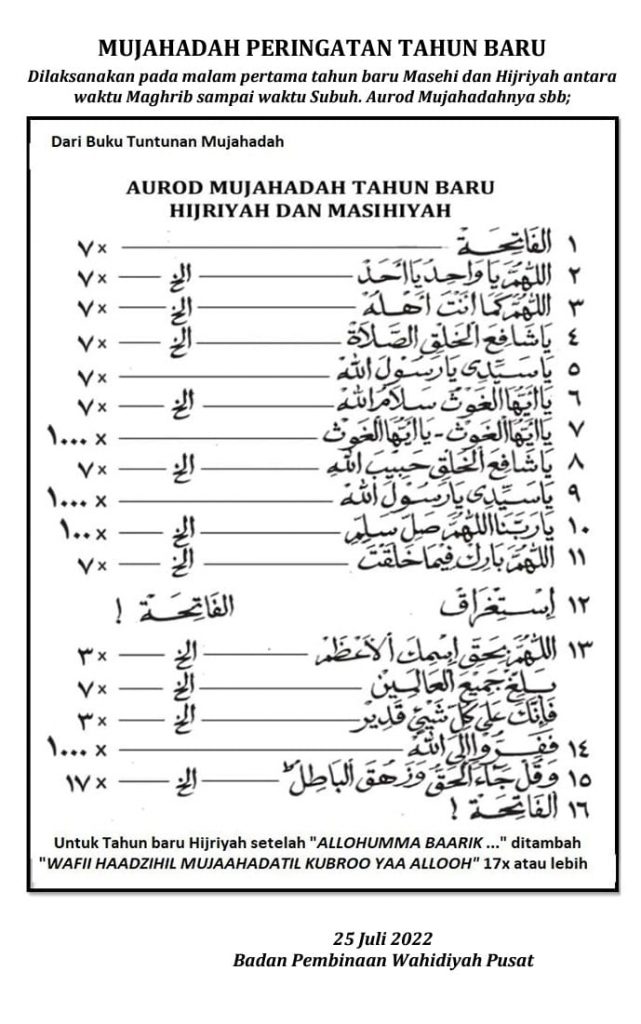 MUJAHADAH PERINGATAN TAHUN BARU
Dilaksanakan pada malam pertama tahun baru Masehi dan Hijriyah antara
waktu Maghrib sampai waktu Subuh. Aurod Mujahadahnya sbb;
Dari Buku Tuntunan Mujahadah
AUROD MUJAHADAH TAHUN BARU
HIJRIYAH DAN MASIHIYAH
١ الفَاتِحَةْ ٧×
٢ اَللّٰهُمَّ يَا وَاحِدُ يَا اَحَدُ الخ ٧×
٣ اَللّٰهُمَّ كَمَا اَنْتَ اَهْلُهْ الخ ٧×
٤ يَا شَافِعَ الْخَلْقِ الصَّلَاةُ الخ ٧×
٥ يَا سَيِّدِى يَا رَسُوْلَ اللهْ ٧×
٦ يَا اَيُّهَا الْغَوْثُ سَلَامُ اللهْ الخ ٧×
٧ يَا اَيُّهَا الْغَوْثُ - يَا اَيُّهَا الْغَوْثُ ١٠٠٠ ×
٨ يَا شَافِعَ الْخَلْقِ حَبِيْبَ اللهِ الخ ٧×
٩ يَا سَيِّدِى يَا رَسُوْلَ اللهْ ١٠٠٠ ×
١٠ يَا رَبَّنَا اللّٰهُمَّ صَلِّ سَلِّمِ الخ ١٠٠ ×
١١ اَللّٰهُمَّ بَارِكْ فِيْمَا خَلَقْتَ الخ ٧×
١٢ اِسْتِغْرَاقْ الفَاتِحَةْ !
١٣ اَللّٰهُمَّ بِحَقِّ اِسْمِكَ اْلاَعْظَمْ الخ ٣×
بَلِّغْ جَمِيْعَ الْعَالَمِيْنَ الخ ٧×
فَاِنَّكَ عَلَى كُلِّ شَيْئٍ قَدِيْرٌ الخ ٣×
١٤ فَفِرُّوْا اِلَى اللهْ ١٠٠٠ ×
١٥ وَقُلْ جَاءَ الْحَقُّ وَزَهَقَ الْبَاطِلُ الخ ١٧ ×
١٦ اَلْفَاتِحَةْ !
Untuk Tahun baru Hijriyah setelah "ALLOHUMMA BAARIK ..." ditambah
"WAFII HAADZIHIL MUJAAHADATIL KUBROO YAA ALLOOH" 17x atau lebih
25 Juli 2022
Badan Pembinaan Wahidiyah Pusat